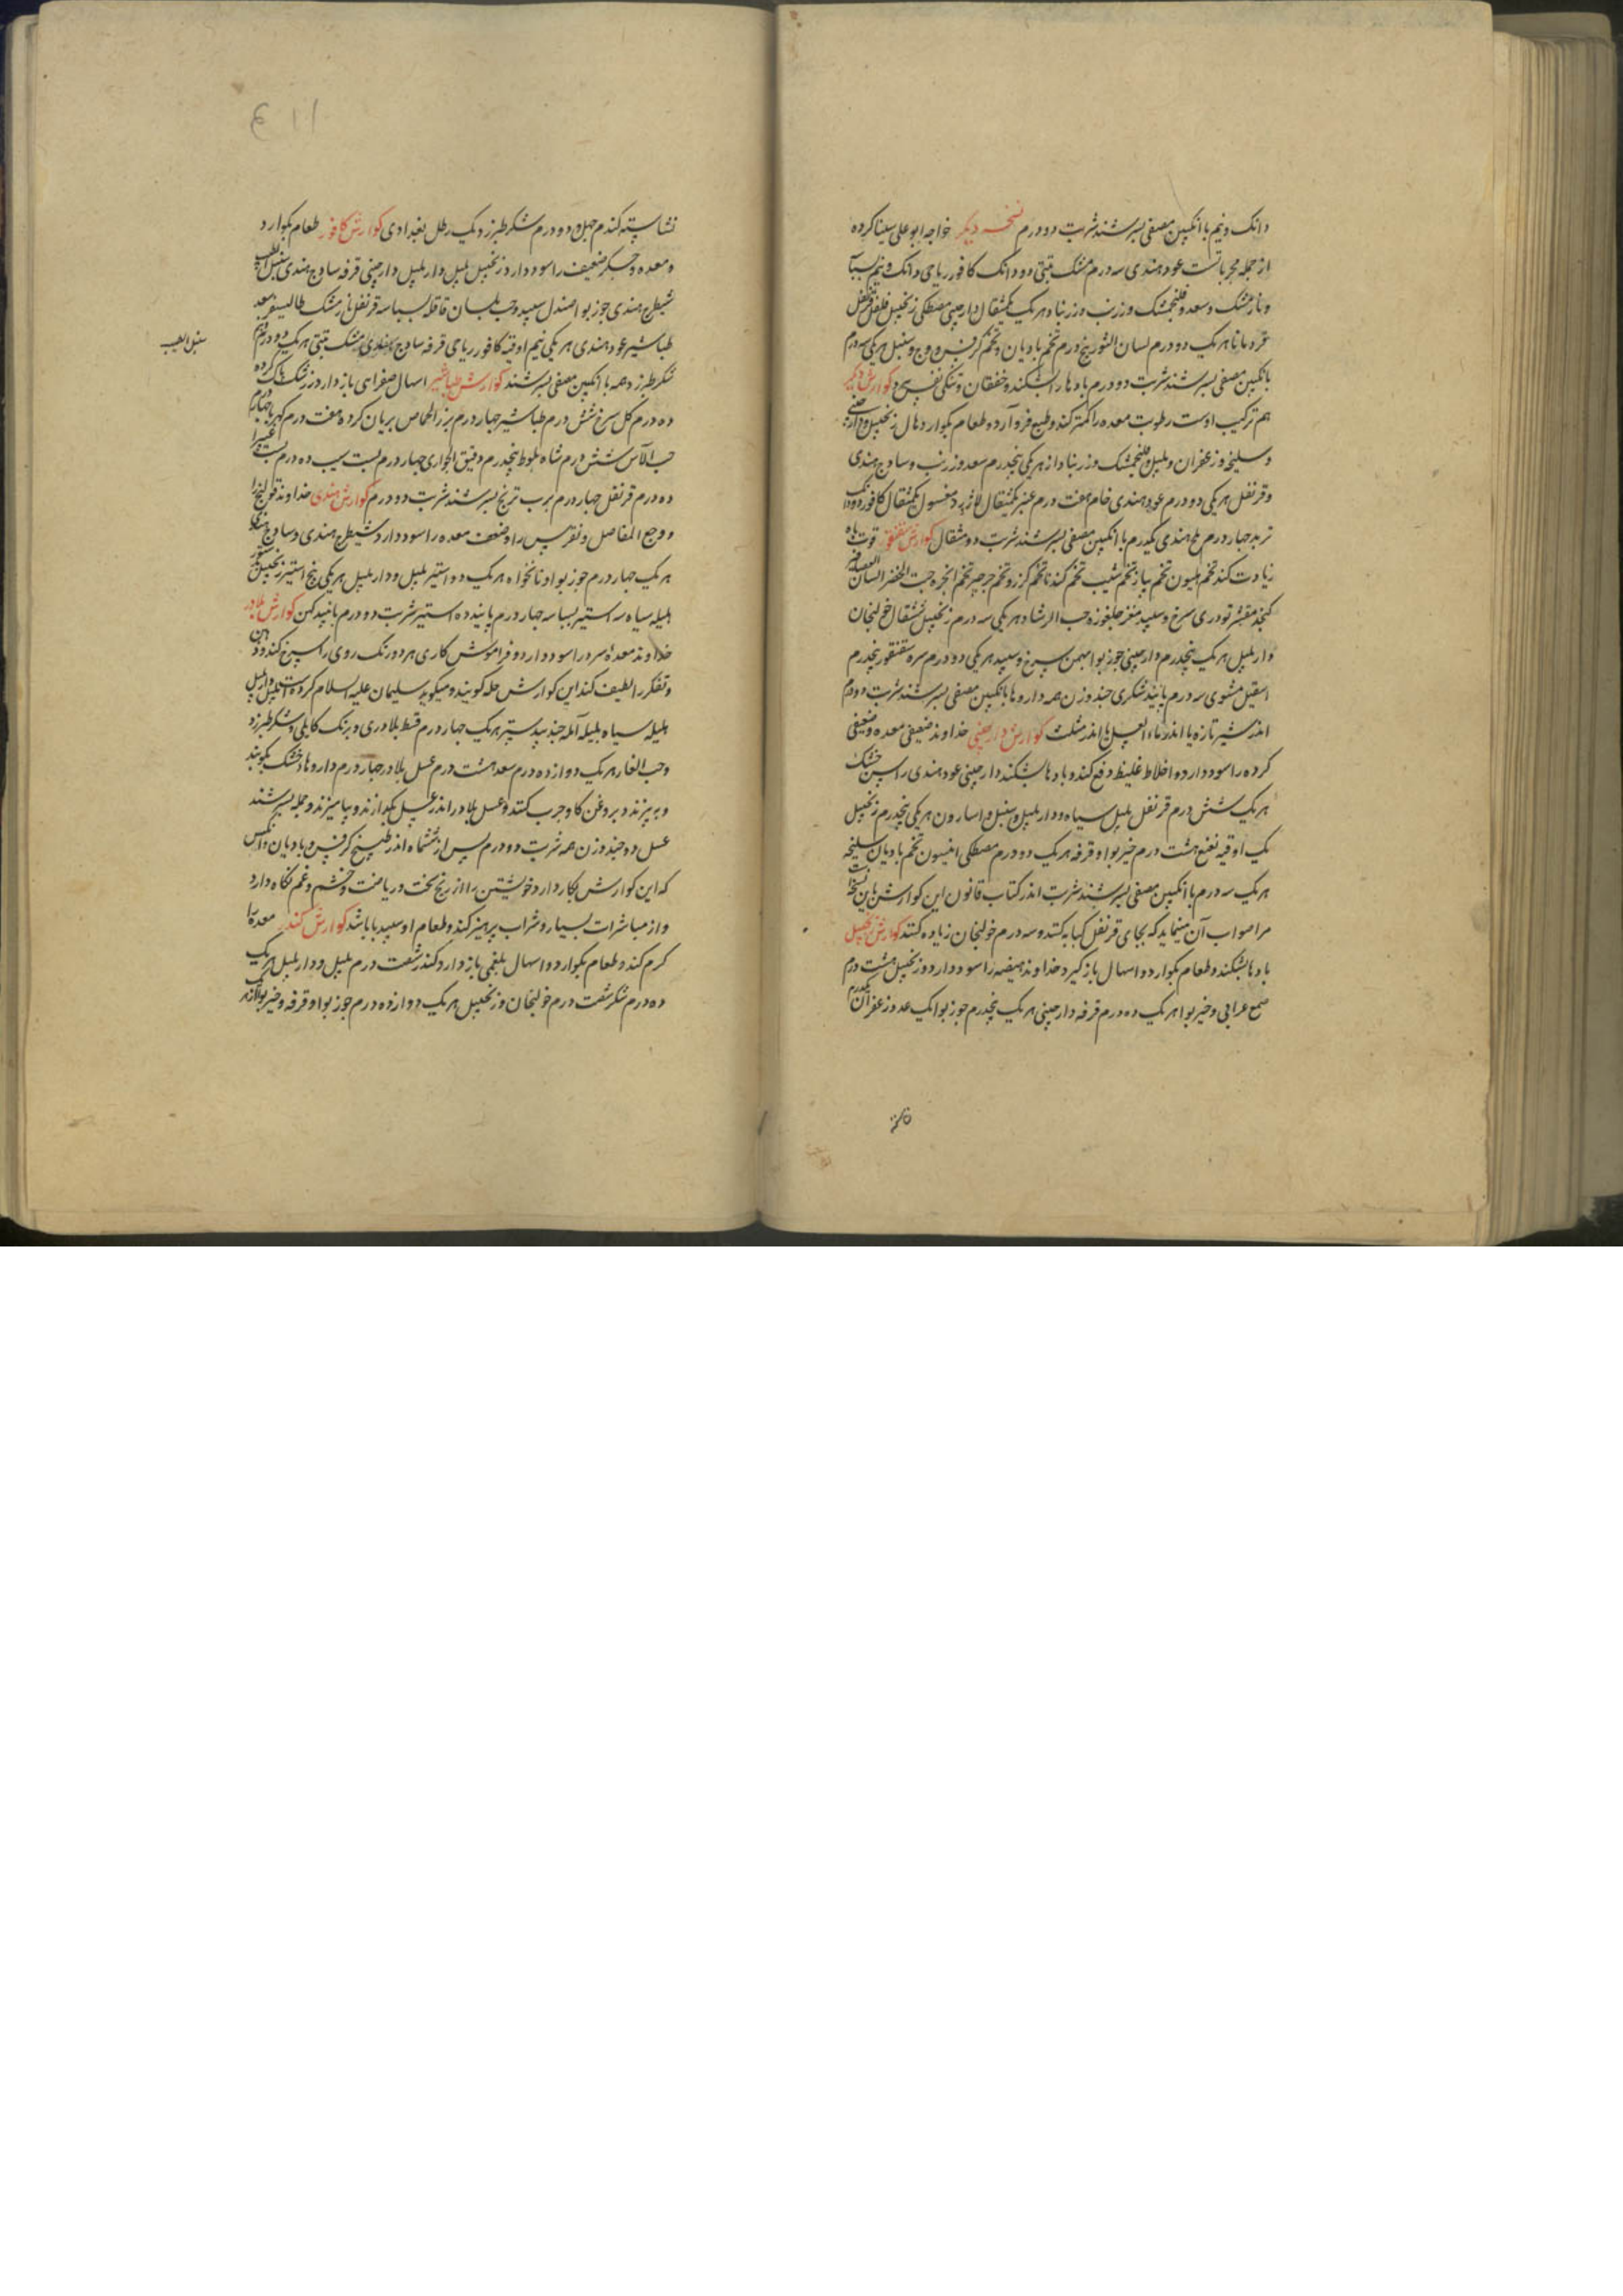 دانک ونیم با انکبین مصفی بسرشند شربت دو درم نسخه دیکر خواجه ابو علی سینا کرده
از جمله مجربانست عود هندی سه درم مشک تبتی دو دانک کافور ریاحی دانک ونیم
ونارمشک وسعد وفلنجمشک وزرنب وزرنباد هر یک یکمثقال دارچینی مصطکی زنجبیل فلفل قرنفل
قردمانا هر یک دو درم لسان الثور پنج درم تخم بادیان وتخم کرفس ووج وسنبل هر یکی سه درم
بانکبین مصفی بسرشند شربت دو درم بادها را بشکند وخفقان وتنکی نفس کوارش دیکر
هم ترکیب اوست رطوبت معده را کمتر کند وطبع فرو آرد وطعام بکوارد هال زنجبیل ودارچینی
وسلیخه وزعفران وبلبل وفلنجمشک وزرنباد از هر یکی پنجدرم سعد وزرنب وساذج هندی
وقرنفل هر یکی دو درم عود هندی خام هفت درم عنبر یکمثقال لاژورد مغسول یکمثقال کافور دو دانک
تربد چهار درم هندی یکدرم با انکبین مصفی بسرشند شربت دو مثقال کوارش سقنقور قوت باه
زیادت کند تخم هلیون تخم پیاز تخم شبت تخم کندنا تخم کزر وتخم جرجیر تخم انجره حبت الخضر لسان العصافیر
کنجد مقشر تودری سرخ وسپید مغز جلغوزه حب الرشاد هر یکی سه درم زنجبیل خولنجان
دار بلبل هر یک پنجدرم دارچینی جوزبوا بهمن سرخ وسپید هر یکی دو درم سره سقنقور پنجدرم
اسقیل مشوی سه درم پانید شکری چند وزن همه داروها بانکبین مصفی بسرشند شربت دو درم
اندر شیر تازه یا اندر ماء العسل یا اندر مثلث کوارش دارچینی خداوند ضعیفی معده وضعیفی
کرده را سود دارد واخلاط غلیظ دفع کند وبادها بشکند دارچینی عود هندی راسن خشک
هر یک شش درم قرنفل بلبل سیاه ودار بلبل وسنبل واسارون هر یکی پنجدرم زنجبیل
یک اوقیه نعنع هشت درم خیربوا وقرفه هر یک دو درم مصطکی انیسون تخم بادیان سلیخه
هر یک سه درم با انکبین مصفی بسرشند شربت اندر کتاب قانون این کوارش باین نسخه است
مرا صواب آن مینماید که بجای قرنفل کبابه کنند وسه درم خولنجان زیاده کنند کوارش زنجبیل
بادها بشکند وطعام بکوارد واسهال باز کیرد خداوند هیضه را سود دارد زنجبیل هشت درم
صمغ عرابی وخیربوا هر یک ده درم قرفه دارچینی هر یک پنجدرم جوزبوا یک عدد زعفران یکدرم
نشاسته کندم چهل ودو درم شکر طبرزد یک رطل بغدادی کوارش کافور طعام بکوارد
ومعده وجکر ضعیف را سود دارد زنجبیل بلبل دار بلبل دارچینی قرفه ساذج هندی سنبل الطیب
شیطرج هندی جوزبوا صندل سپید وحب بلسان قاقله بسباسه قرنفل نارمشک طالیسفر سعد
طباشیر عود هندی هر یکی نیم اوقیه کافور ریاحی قرفه ساذج هندی مشک تبتی هر یک دو درم
شکر طبرزد همه با انکبین مصفی بسرشند کوارش طباشیر اسهال صفرای باز دارد زرشک پاک کرده
ده درم کل سرخ شش درم طباشیر چهار درم بزر الحماض بریان کرده هفت درم کهربا چهار درم
حب الآس شش درم شاه بلوط پنجدرم دقیق الحواری چهار درم پست سیب ده درم پست غبیرا
ده درم قرنفل چهار درم برب ترنج بسرشند شربت دو درم کوارش هندی خداوند قولنج را
ووجع المفاصل ونقرس را وضعف معده را سود دارد شیطرج هندی وساذج هندی
هر یک چهار درم جوزبوا ونانخواه هر یک دو استیر بلبل ودار بلبل هر یکی پنج استیر زنجبیل
هلیله سیاه سه استیر بسباسه چهار درم پانید ده استیر شربت دو درم با نبید کهن کوارش بلادر
خداوند معده سرد را سود دارد وفراموش کاری ببرد ورنک روی را سرخ کند وذهن
وتفکر را لطیف کند این کوارش جمله کویند ومیکوید سلیمان علیه السلام کرده است بلبل دار بلبل
هلیله سیاه بلیله آمله جند بیدستر هر یک چهار درم قسط بلادری وبرنک کابلی وشکر طبرزد
وحب الغار هر یک دوازده درم سعد هشت درم عسل بلادر چهار درم داروها خشک بکوبند
وببیزند وبروغن کاو چرب کنند وعسل بلادر اندر عسل بکدازند وبیامیزند وجمله بسرشند
عسل دو چند وزن همه شربت دو درم پس از ششماه اندر طبیخ کرفس وبادیان وانکس
که این کوارش بکار دارد خویشتن را از رنج سخت وریاضت وخشم وغم نکاه دارد
واز مباشرات بسیار وشراب پرهیز کند وطعام او سپید با باشد کوارش کندر معده را
کرم کند وطعام بکوارد واسهال بلغمی باز دارد کندر شصت درم بلبل ودار بلبل هر یک
ده درم شکر شصت درم خولنجان وزنجبیل هر یک دوازده درم جوزبوا وقرفه وخیربوا
سنبل الطیب